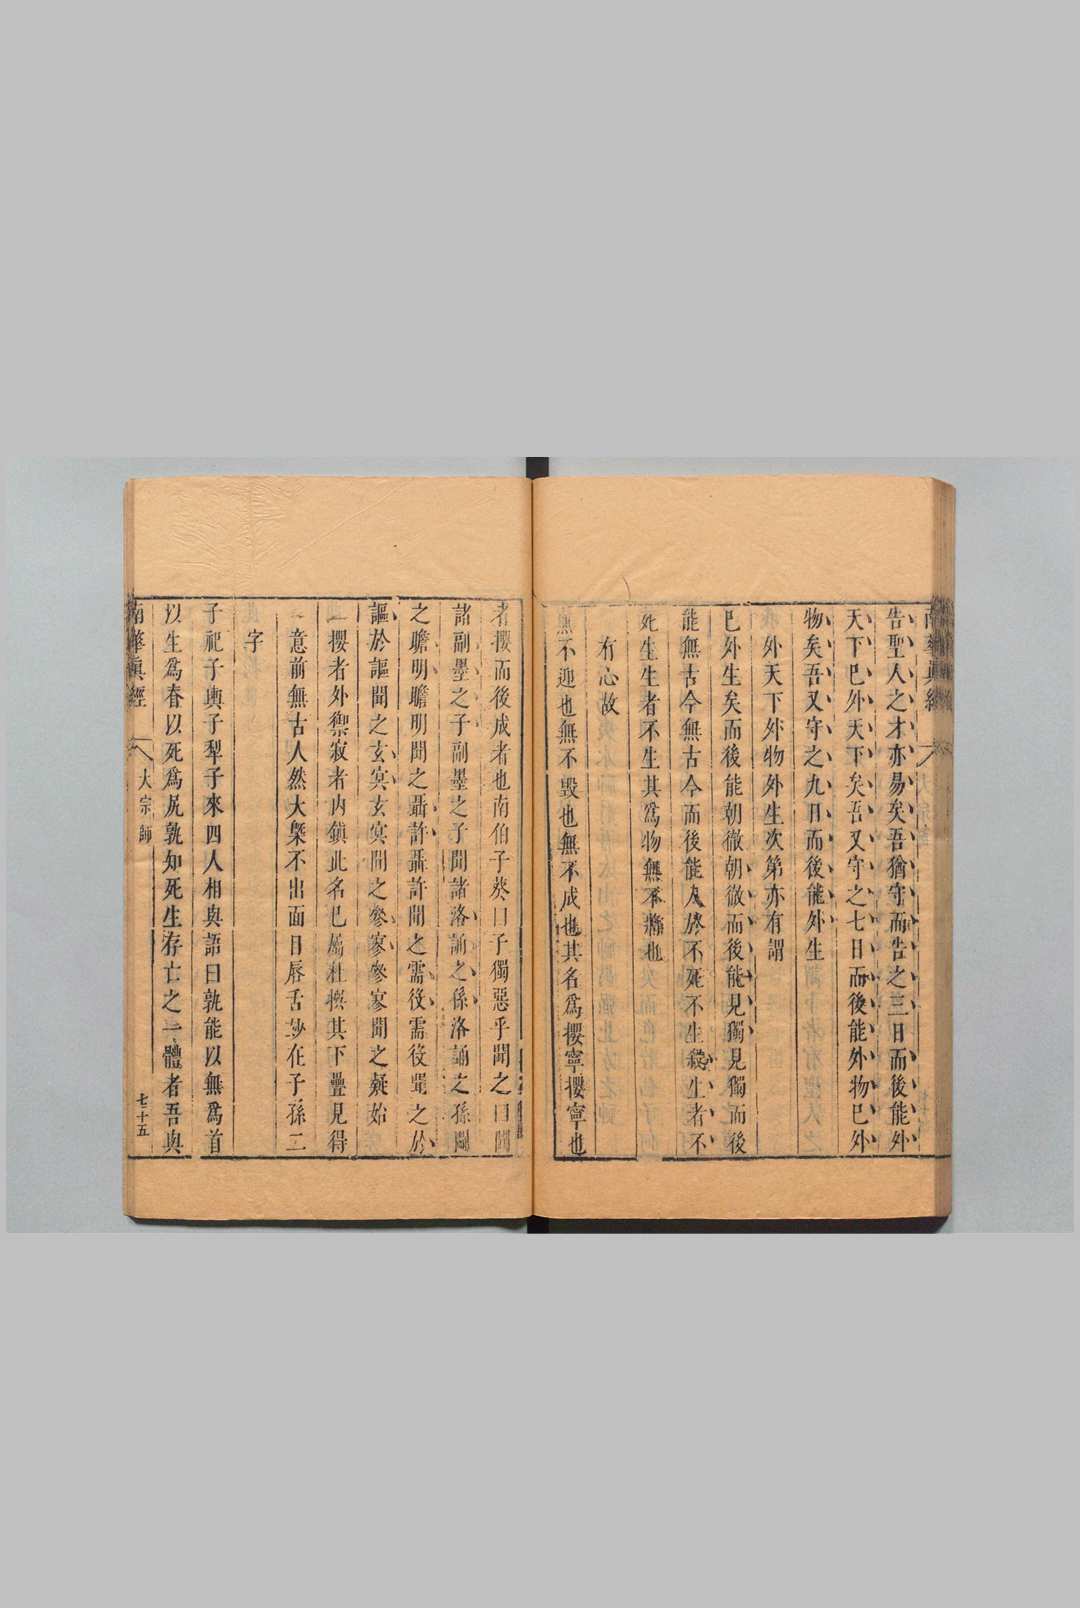 告聖人之才亦易矣吾猶守而告之三日而後能外
天下已外天下矣吾又守之七日而後能外物已外
物矣吾又守之九日而後能外生
外天下外物外生次第亦有謂
已外生矣而後能朝徹朝徹而後能見獨見獨而後
能無古今無古今而後能入於不死不生殺生者不
死生生者不生其爲物無不將也
有心故
無不迎也無不毀也無不成也其名爲攖寧攖寧也
者攖而後成者也南伯子葵曰子獨惡乎聞之曰聞
諸副墨之子副墨之子聞諸洛誦之孫洛誦之孫聞
之瞻明瞻明聞之聶許聶許聞之需役需役聞之於
謳於謳聞之玄冥玄冥聞之參寥參寥聞之疑始
攖者外禦寂者內鎮此名已屬杜撰其下疊見得
意前無古人然大槩不出面目唇舌妙在子孫二
字
子祀子輿子犁子來四人相與語曰孰能以無爲首
以生爲脊以死爲尻孰知死生存亡之一體者吾與
南華眞經
大宗師
七十五